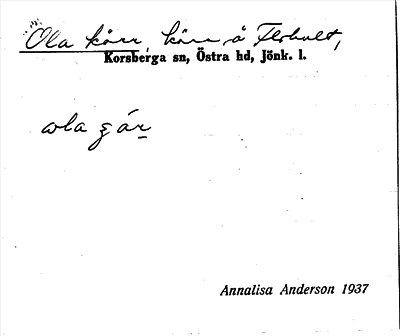 Ola kärr, kärr å Flohult,
Korsberga sn, Östra hd, Jönk. l.
Annalisa Anderson 1937